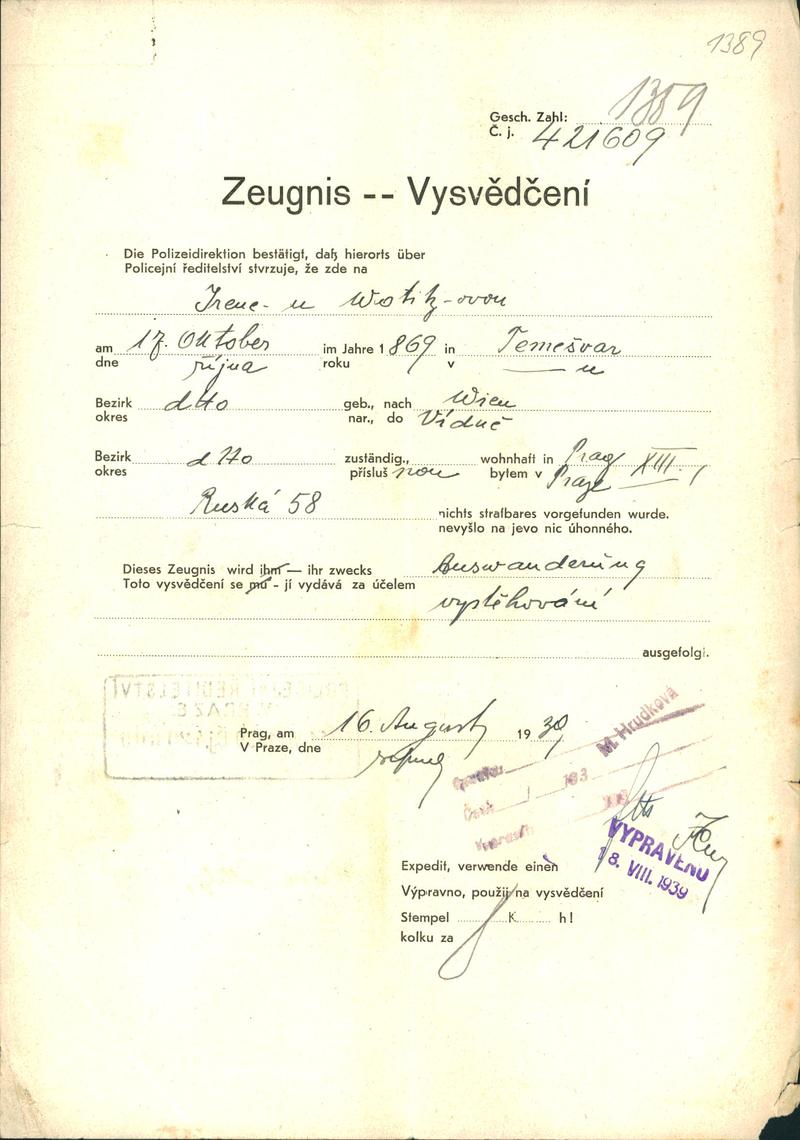 1389
Gesch. Zahl: 1389
Č. j. 421609
Zeugnis -- Vysvědčení
Die Polizeidirektion bestätigt, daß hierorts über
Policejní ředitelství stvrzuje, že zde na
Irene- u Wotitz-ovou
am 17. Oktober im Jahre 1869 in Temešvar
dne října roku v — u
Bezirk dtto geb., nach Wien
okres nar., do Vídně
Bezirk dtto zuständig., wohnhaft in Prag XIII.
okres přísluš nou bytem v Praze —
Ruská 58 nichts strafbares vorgefunden wurde.
nevyšlo na jevo nic úhonného.
Dieses Zeugnis wird ihm — ihr zwecks Auswanderung
Toto vysvědčení se mu - jí vydává za účelem
vystěhování
ausgefolgt.
POLICEJNÍ ŘEDITELSTVÍ
V PRAZE
Prag, am 16. August 1939
V Praze, dne srpna
M. Hrudková
VYPRAVENO
18. VIII. 1939
Expedit, verwende einen
Výpravno, použij na vysvědčení
Stempel K h!
kolku za